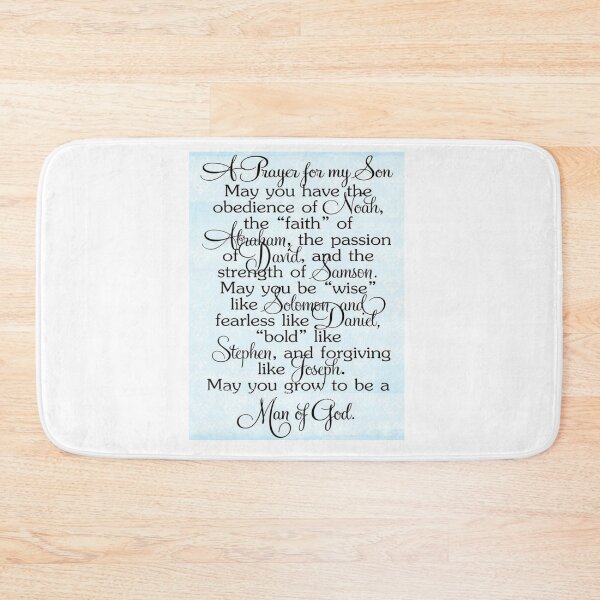 A Prayer for my Son
May you have the
obedience of Noah,
the “faith” of
Abraham, the passion
of David, and the
strength of Samson.
May you be “wise”
like Solomon and
fearless like Daniel,
“bold” like
Stephen, and forgiving
like Joseph.
May you grow to be a
Man of God.